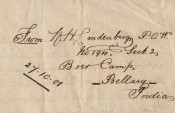 From W H Lindenberg, P.O.W.
No 194. Sect. 2,
Boer Camp,
Bellary
India
27-10-01